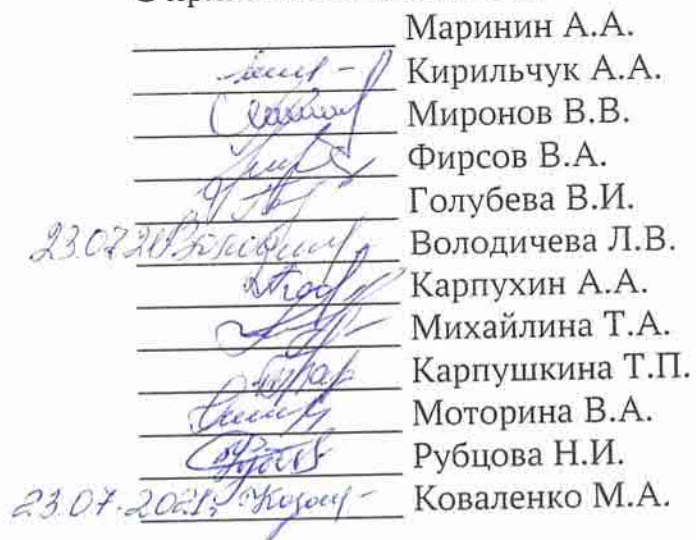 Маринин А.А.
Кирильчук А.А.
Миронов В.В.
Фирсов В.А.
Голубева В.И.
23.07.21 Володичева Л.В.
Карпухин А.А.
Михайлина Т.А.
Карпушкина Т.П.
Моторина В.А.
Рубцова Н.И.
23.07.2021г. Коваленко М.А.